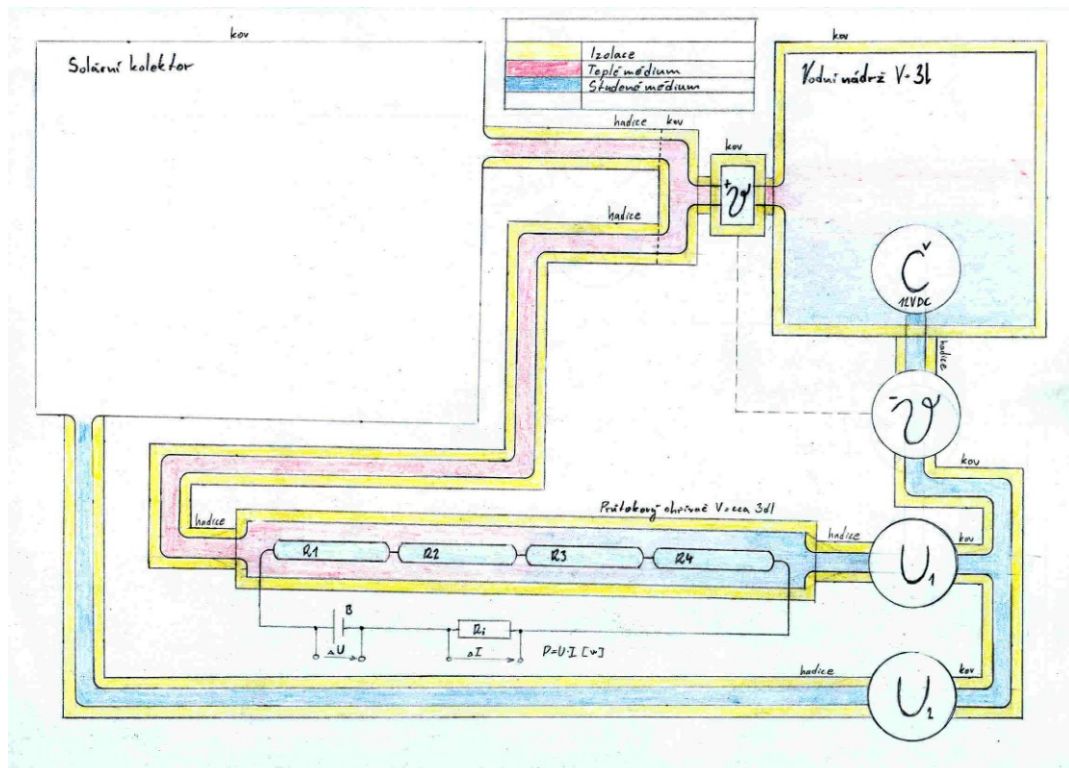 kov
Solární kolektor
Izolace
Teplé médium
Studené médium
kov
Vodní nádrž V-3l
hadice kov
kov
+ϑ
hadice
Č
12VDC
hadice
-ϑ
kov
Průtokový ohřívač V cca 3dl
hadice
hadice
kov
R1
R2
R3
R4
U1
B
Ri
ΔU
ΔI
P=U·I [W]
hadice
kov
U2